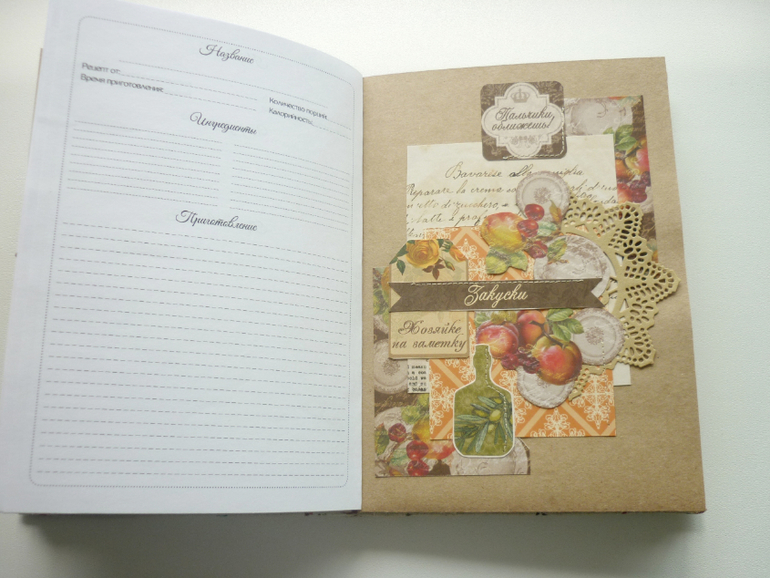 Название
Рецепт от:
Время приготовления:
Количество порций:
Калорийность:
Ингредиенты
Приготовление
Пальчики
оближешь!
Bavarese alla
Reparare la crema
Закуски
Хозяйке
на заметку